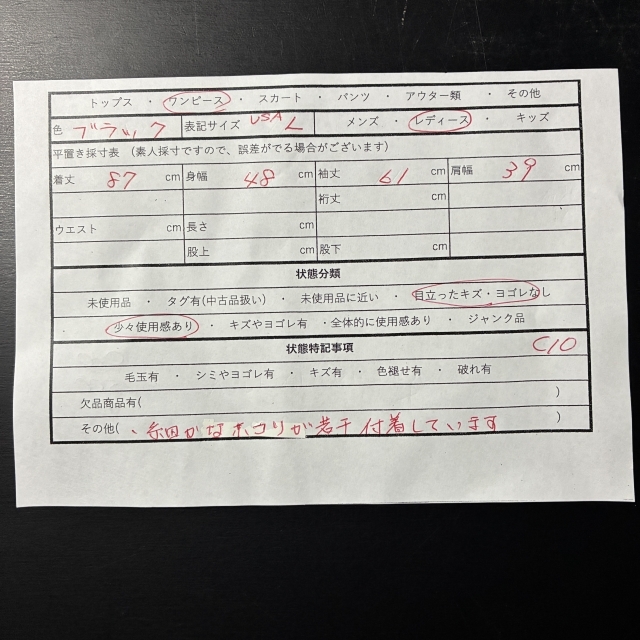 トップス ・ ワンピース ・ スカート ・ パンツ ・ アウター類 ・ その他
色 ブラック 表記サイズ USA L メンズ ・ レディース ・ キッズ
平置き採寸表 (素人採寸ですので、誤差がでる場合がございます)
着丈 87 cm 身幅 48 cm 袖丈 61 cm 肩幅 39 cm
裄丈 cm
ウエスト cm 長さ cm
股上 cm 股下 cm
状態分類
未使用品 ・ タグ有(中古品扱い) ・ 未使用品に近い ・ 目立ったキズ・ヨゴレなし
・ 少々使用感あり ・ キズやヨゴレ有 ・全体的に使用感あり ・ ジャンク品
状態特記事項 C10
毛玉有 ・ シミやヨゴレ有 ・ キズ有 ・ 色褪せ有 ・ 破れ有
欠品商品有( )
その他( ・細かなホコリが若干付着しています )